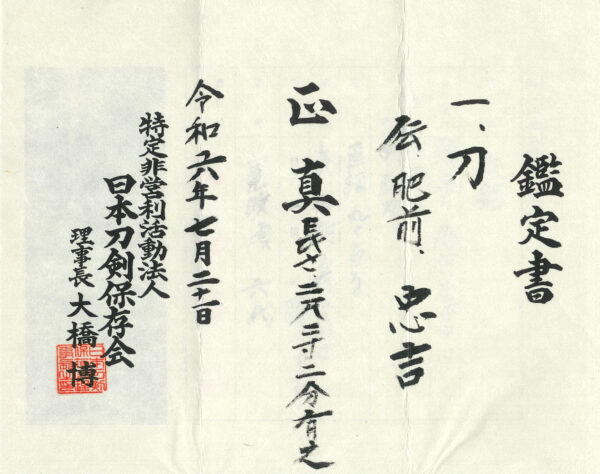 鑑定書
一、刀
伝、肥前、忠吉
正真 長さ、二尺三寸二分有之
令和六年七月二十一日
特定非営利活動法人
日本刀剣保存会
理事長 大橋 博